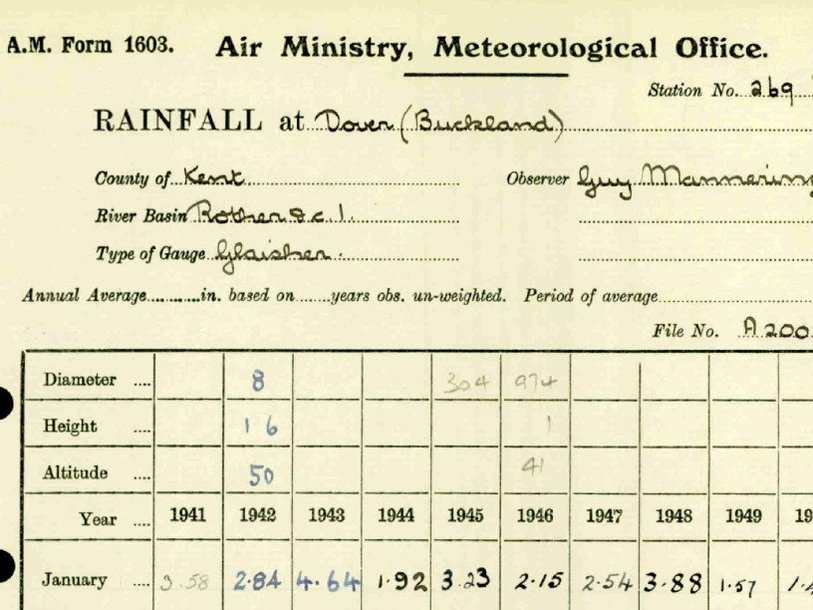 A.M. Form 1603. Air Ministry, Meteorological Office.
Station No. 269
RAINFALL at Dover (Buckland)
County of Kent Observer Guy Mannering
River Basin Rother & c 1.
Type of Gauge Glaisher.
Annual Average............in. based on.......years obs. un-weighted. Period of average
File No. A 200
Diameter .... 8 304 974
Height .... 16 1
Altitude .... 50 41
Year .... 1941 1942 1943 1944 1945 1946 1947 1948 1949 19
January .... 3.58 2.84 4.64 1.92 3.23 2.15 2.54 3.88 1.57 1.4